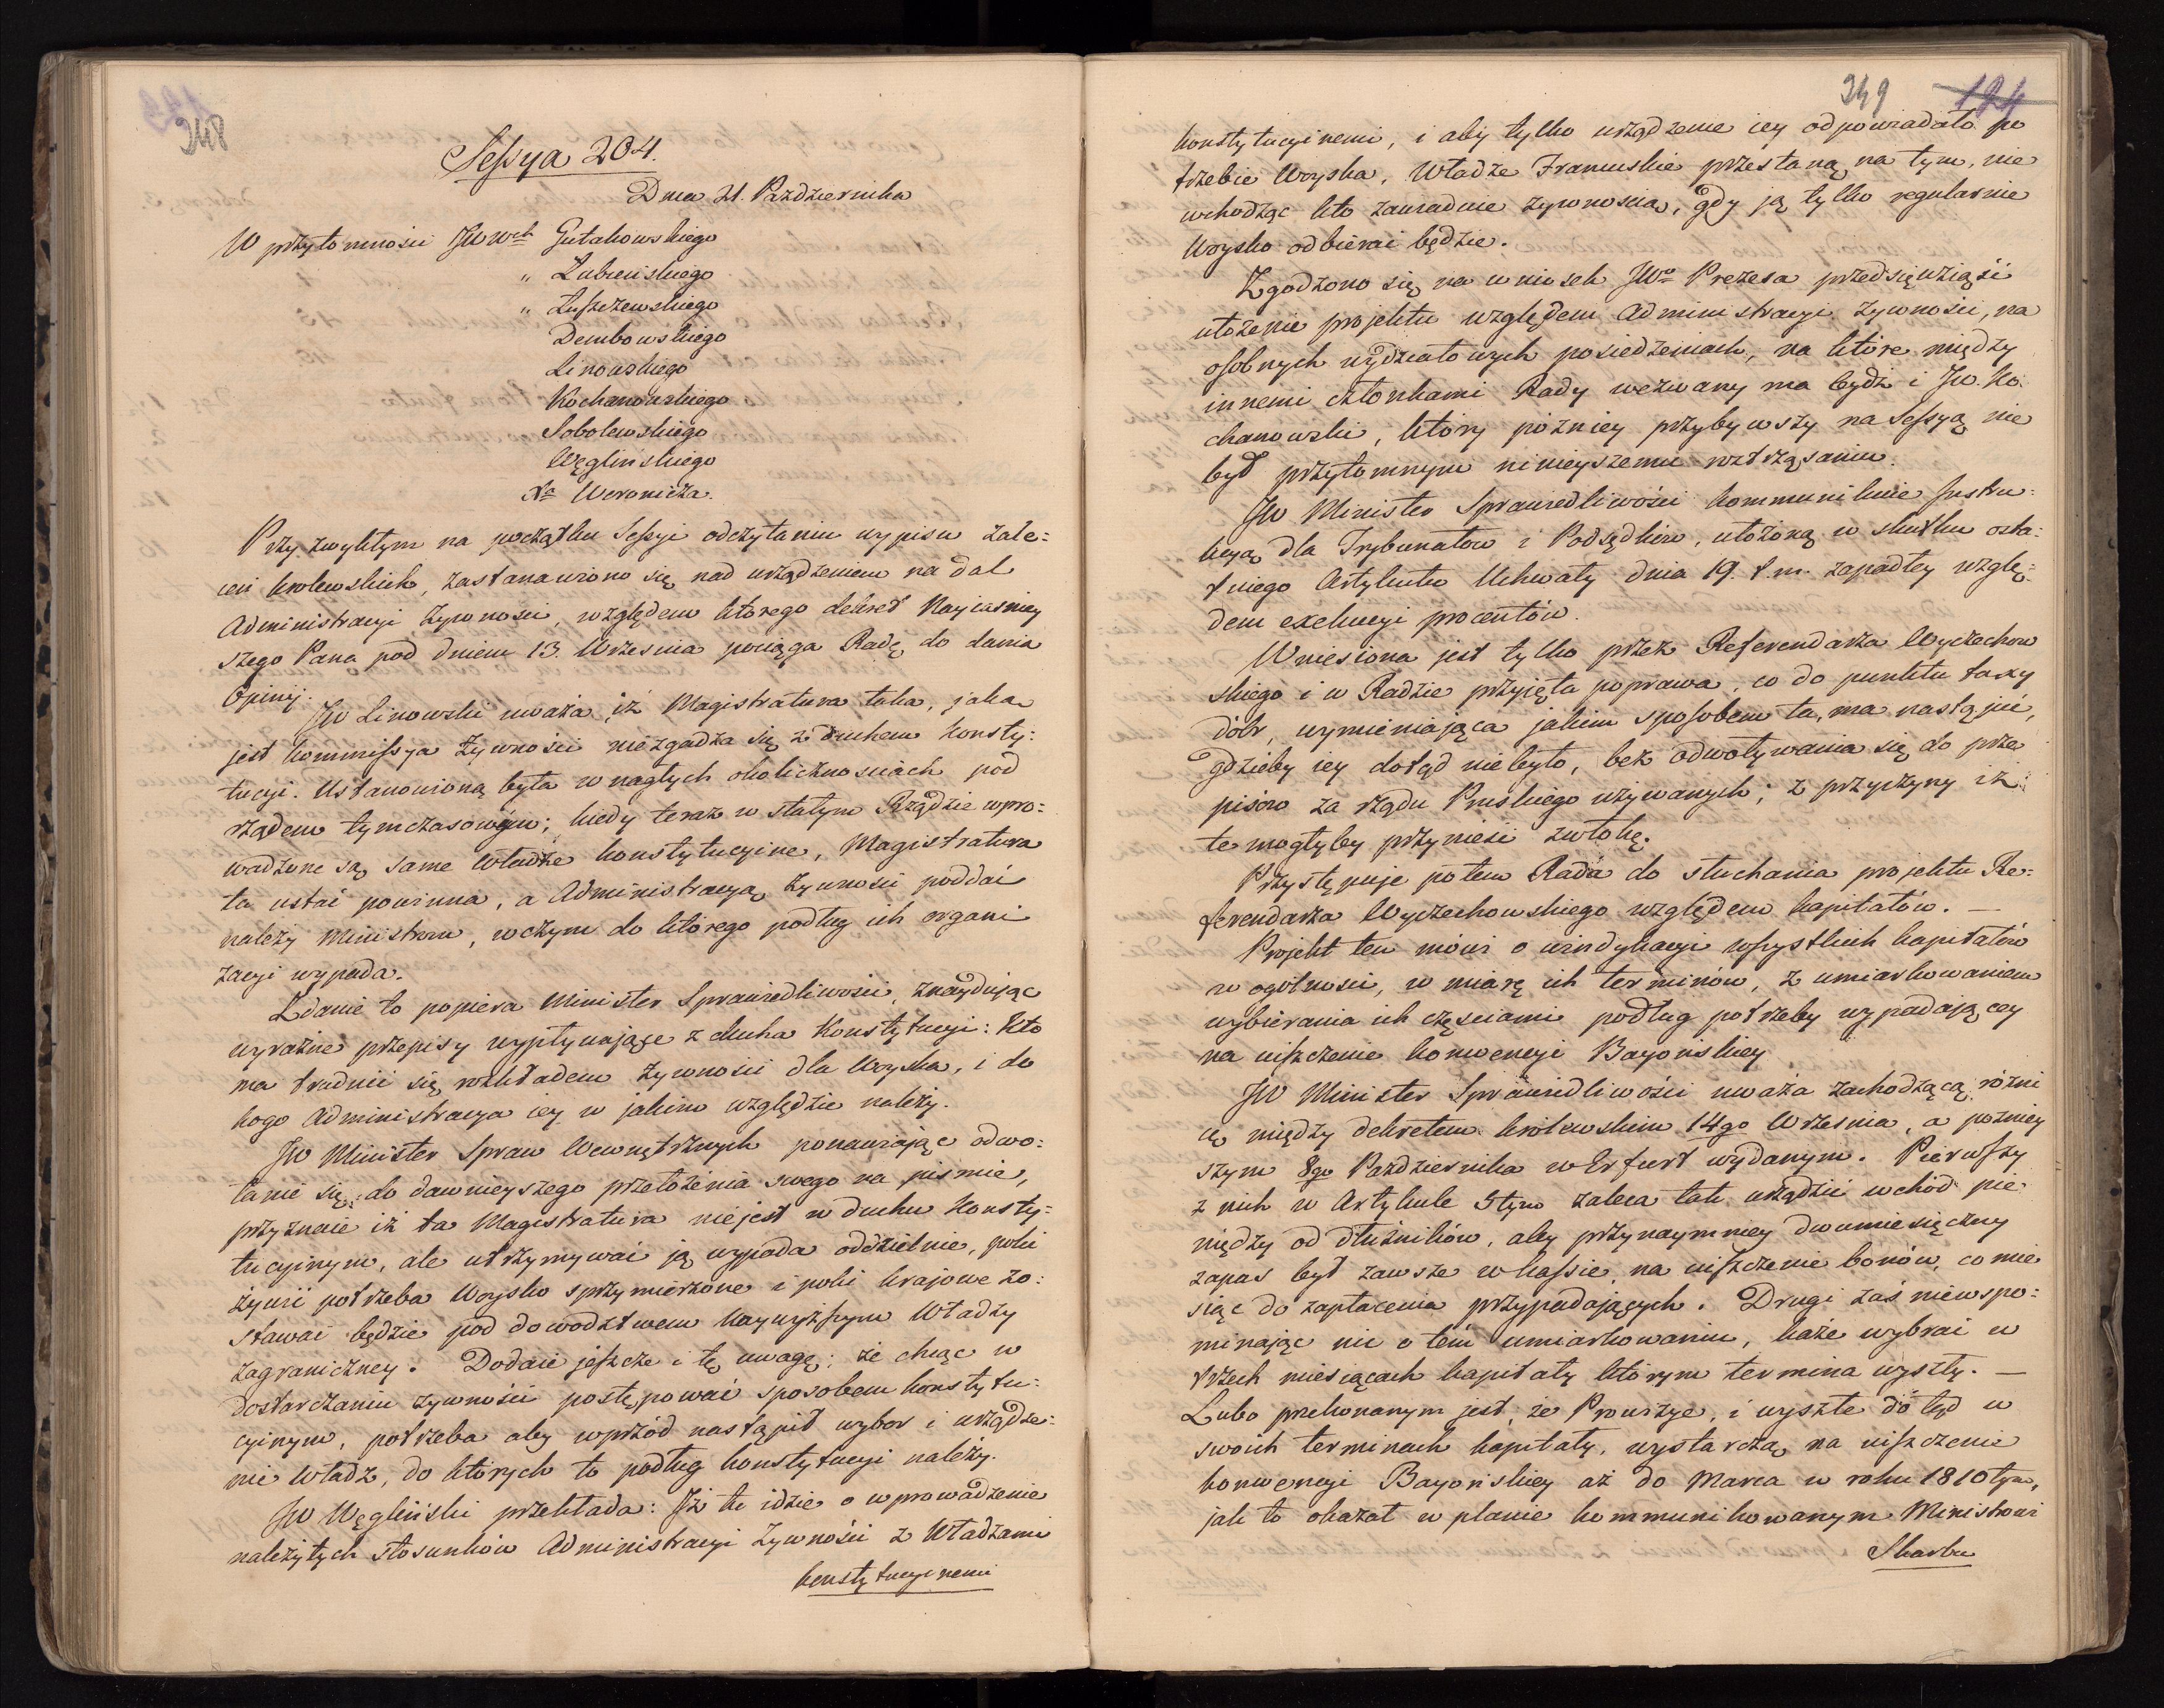 248
Sessya 204.
Dnia 21. Października
W przytomności JWch Gutakowskiego
" Łubieńskiego
" Łuszczewskiego
Dembowskiego
Linowskiego
Kochanowskiego
Sobolewskiego
Węglińskiego
Xa Woronicza.
Przy zwykłym na początku Sessyi odczytaniu wypisu zale=
ceń krolewskich, zastanawiono się nad urządzeniem na dal
Administracyi Żywności, względem którego dekret Nayiaśniey
szego Pana pod dniem 13. Września pociąga Radę do dania
Opinij.
JW Linowski uważa iż Magistratura taka, jaką
jest Kommissya Żywności niezgadza się z duchem Konsty=
tucyi. Ustanowioną była w nagłych okolicznościach pod
rządem tymczasowym; kiedy teraz w stałym Rządzie wpro=
wadzone są same Władze konstytucyine, Magistratura
ta ustać powinna, a Administracyą Żywności poddać
należy Ministrom, w czym do którego podług ich organi
zacyi wypada.
Zdanie to popiera Minister Sprawiedliwości, znayduiąc
wyraźne przepisy wypływające z ducha Konstytucyi: Kto
ma trudnić się rozkładem Żywności dla Woyska, i do
kogo Administracya iey w jakim względzie należy.
JW Minister Spraw Wewnętrznych ponawiając odwo=
łanie się do dawnieyszego przełożenia swego na piśmie,
przyznaie iż ta Magistratura nie jest w duchu Konsty=
tucyjnym, ale utrzymywać ją wypada oddzielnie, poki
żywić potrzeba Woysko sprzymierzone i poki krajowe zo=
stawać będzie pod dowodztwem Naywyższym Władzy
zagraniczney. Dodaie jeszcze i tę uwagę: że chcąc w
dostarczaniu żywności postępować sposobem konstytu=
cyinym, potrzeba aby wprzód nastąpił wybor i urządze=
nie Władz, do których to podług konstytucyi należy.
JW Węgliński przekłada: Iż tu idzie o wprowadzenie
należytych stosunków Administracyi Żywności z Władzami
konstytucyinemi
249 124
konstytucyinemi, i aby tylko urządzenie iey odpowiadało po
trzebie Woyska, Władze Francuskie przestaną na tym, nie
wchodząc kto zawiaduie żywnością, gdy ją tylko regularnie
Woysko odbierać będzie.
Zgodzono się na wniosek JWo Prezesa przedsięwziąść
ułożenie projektu względem Administracyi Żywności, na
osobnych wydziałowych posiedzeniach, na które między
innemi członkami Rady wezwany ma bydź i JW. Ko
chanowski, który pożniey przybywszy na Sessyą nie
był przytomnym ninieyszemu roztrząsaniu.
JW Minister Sprawiedliwości kommunikuie Instru=
kcyą dla Trybunałów i Podsędków, ułożoną w skutku osta=
tniego Artykułu Uchwały dnia 19. t.m. zapadłey wzglę=
dem exekucyi procentów.
Wniesiona jest tylko przez Referendarza Wyczechow
skiego i w Radzie przyjęta poprawa, co do punktu taxy
dóbr, wymieniająca jakim sposobem ta, ma nastąpić,
gdzieby iey dotąd nie było, bez odwoływania się do prze
pisów za rządu Pruskiego używanych; z przyczyny iż
te mogłyby przynieść zwłokę.
Przystępuje potem Rada do słuchania projektu Re=
ferendarza Wyczechowskiego względem kapitałów. —
Projekt ten mówi o windykacyi wszystkich kapitałów
w ogólności, w miarę ich terminów, z umiarkowaniem
wybierania ich częściami podług potrzeby wypadającey
na uiszczenie konwencyi Bayońskiey
JW Minister Sprawiedliwości uważa zachodzącą różni
cę między dekretem królewskim 14go Września, a poźniey
szym 8go Października w Erfurt wydanym. Pierwszy
z nich w Artykule 5tym zaleca tak urządzić wchód pie
niędzy od dłużników, aby przynaymniey dwumiesięczny
zapas był zawsze w kassie na uiszczenie bonów, co mie
siąc do zapłacenia przypadających. Drugi zaś niewspo=
minając nic o tém umiarkowaniu, każe wybrać w
trzech miesiącach kapitały którym termina wyszły. —
Lubo przekonanym jest, że Prowizye, i wyszłe dotąd w
swoich terminach kapitały, wystarczą na uiszczenie
konwencyi Bayońskiey aż do Marca w roku 1810tym,
jak to okazał w planie kommunikowanym Ministrowi
Skarbu